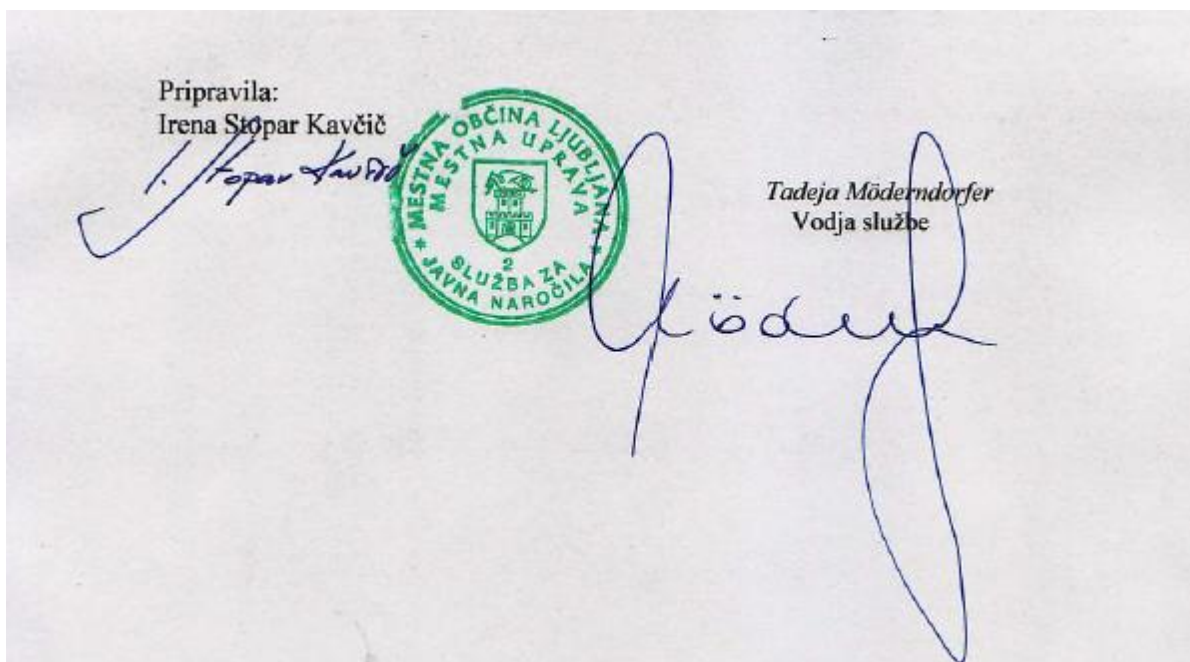 Pripravila:
Irena Stopar Kavčič
I. Stopar Kavčič
MESTNA OBČINA LJUBLJANA
MESTNA UPRAVA
2
SLUŽBA ZA
* JAVNA NAROČILA *
Tadeja Möderndorfer
Vodja službe